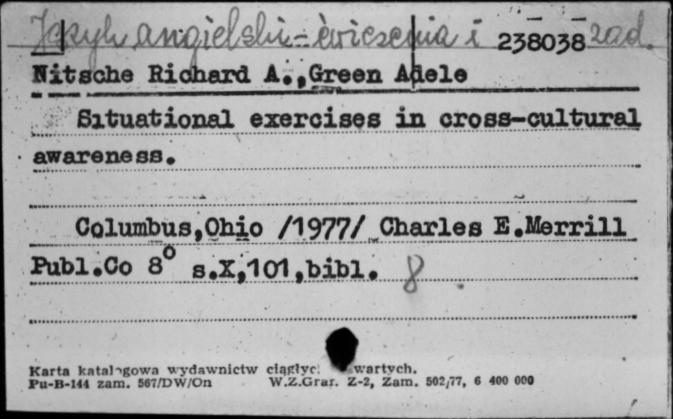 Język angielski - ćwiczenia i 238038 zad.
Nitsche Richard A.,Green Adele
Situational exercises in cross-cultural
awareness.
Columbus,Ohio /1977/ Charles E.Merrill
Publ.Co 8° s.X,101,bibl. 8
Karta katalogowa wydawnictw ciągłyc. wartych.
Pu-B-144 zam. 567/DW/On W.Z.Graf. Z-2, Zam. 502/77, 6 400 000